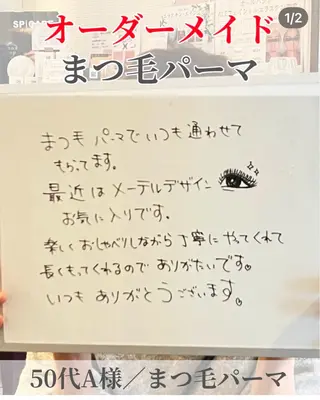 1/2
オーダーメイド
まつ毛パーマ
まつ毛パーマでいつも通わせて
もらってます。
最近はメーテルデザイン
お気に入りです。
楽しくおしゃべりしながら丁寧にやってくれて
長くもってくれるのでありがたいです。
いつもありがとうございます。
50代A様／まつ毛パーマ